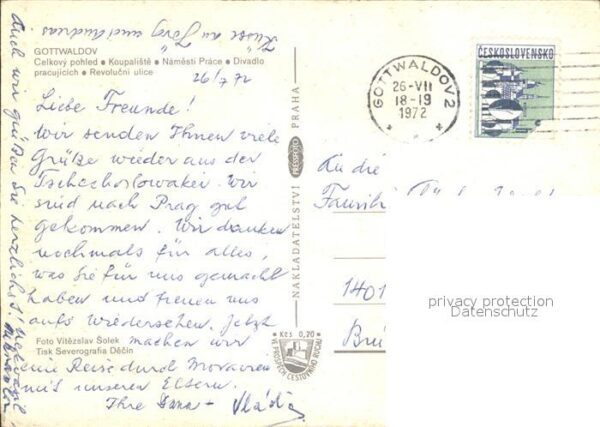 Küsse an Jörg und Andreas.
GOTTWALDOV
Celkový pohled • Koupaliště • Náměstí Práce • Divadlo
pracujících • Revoluční ulice
26/7 72
Liebe Freunde!
Wir senden Ihnen viele
Grüße wieder aus der
Tschechoslowakei. Wir
sind nach Prag gut
gekommen. Wir danken
nochmals für alles,
was Sie für uns gemacht
haben und freuen uns
aufs Wiedersehen. Jetzt
machen wir
eine Reise durch Moravien
mit unseren Eltern.
Ihre Dana + Vláďa
Foto Vítězslav Šolek
Tisk Severografia Děčín
Auch wir grüßen Sie herzlichst!
NAKLADATELSTVÍ PRESSFOTO PRAHA
Kčs 0,20
VE PROSPĚCH CESTOVNÍHO RUCHU
GOTTWALDOV 2
26-VII
18-19
1972
ČESKOSLOVENSKO
An die
1401
privacy protection
Datenschutz